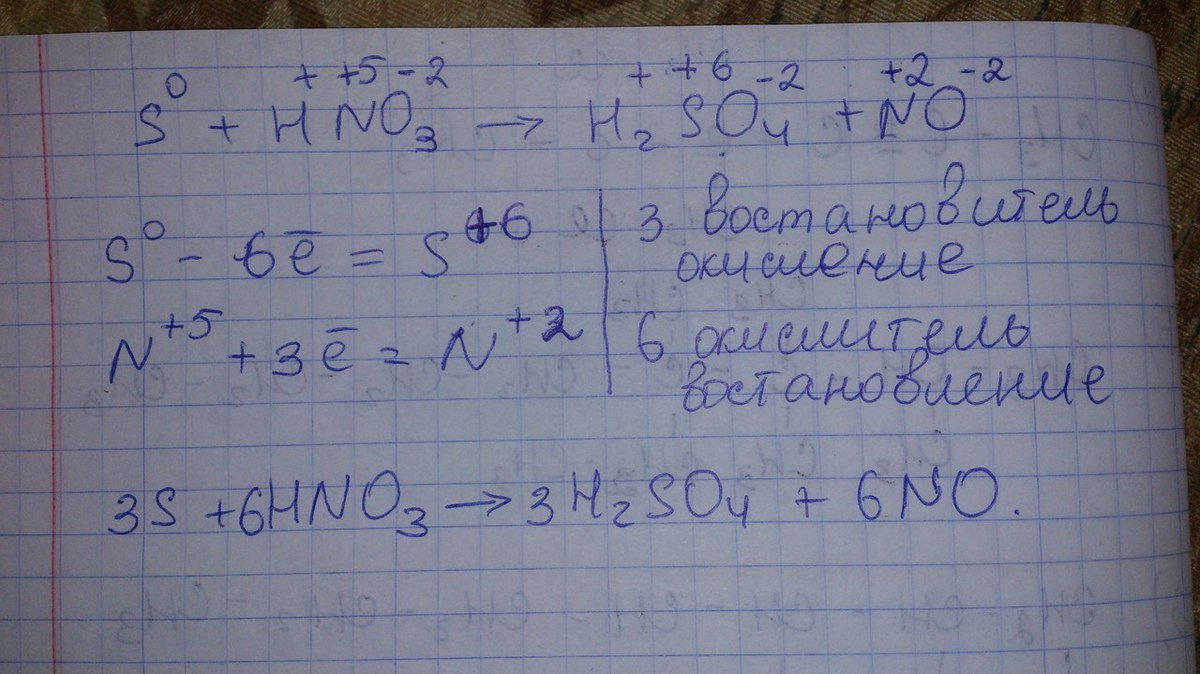 S⁰ + H⁺N⁺⁵O₃⁻² → H₂⁺S⁺⁶O₄⁻² + N⁺²O⁻²
S⁰ - 6ē = S⁺⁶ | 3 востановитель
окисление
N⁺⁵ + 3ē = N⁺² | 6 окислитель
востановление
3S + 6HNO₃ → 3H₂SO₄ + 6NO.